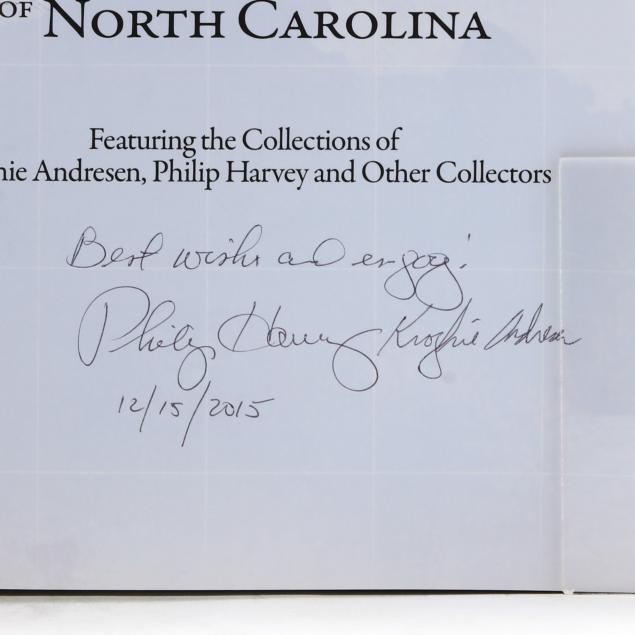 OF NORTH CAROLINA
Featuring the Collections of
nie Andresen, Philip Harvey and Other Collectors
Best wishes and enjoy!
Philip Harvey Kroghie Andresen
12/15/2015